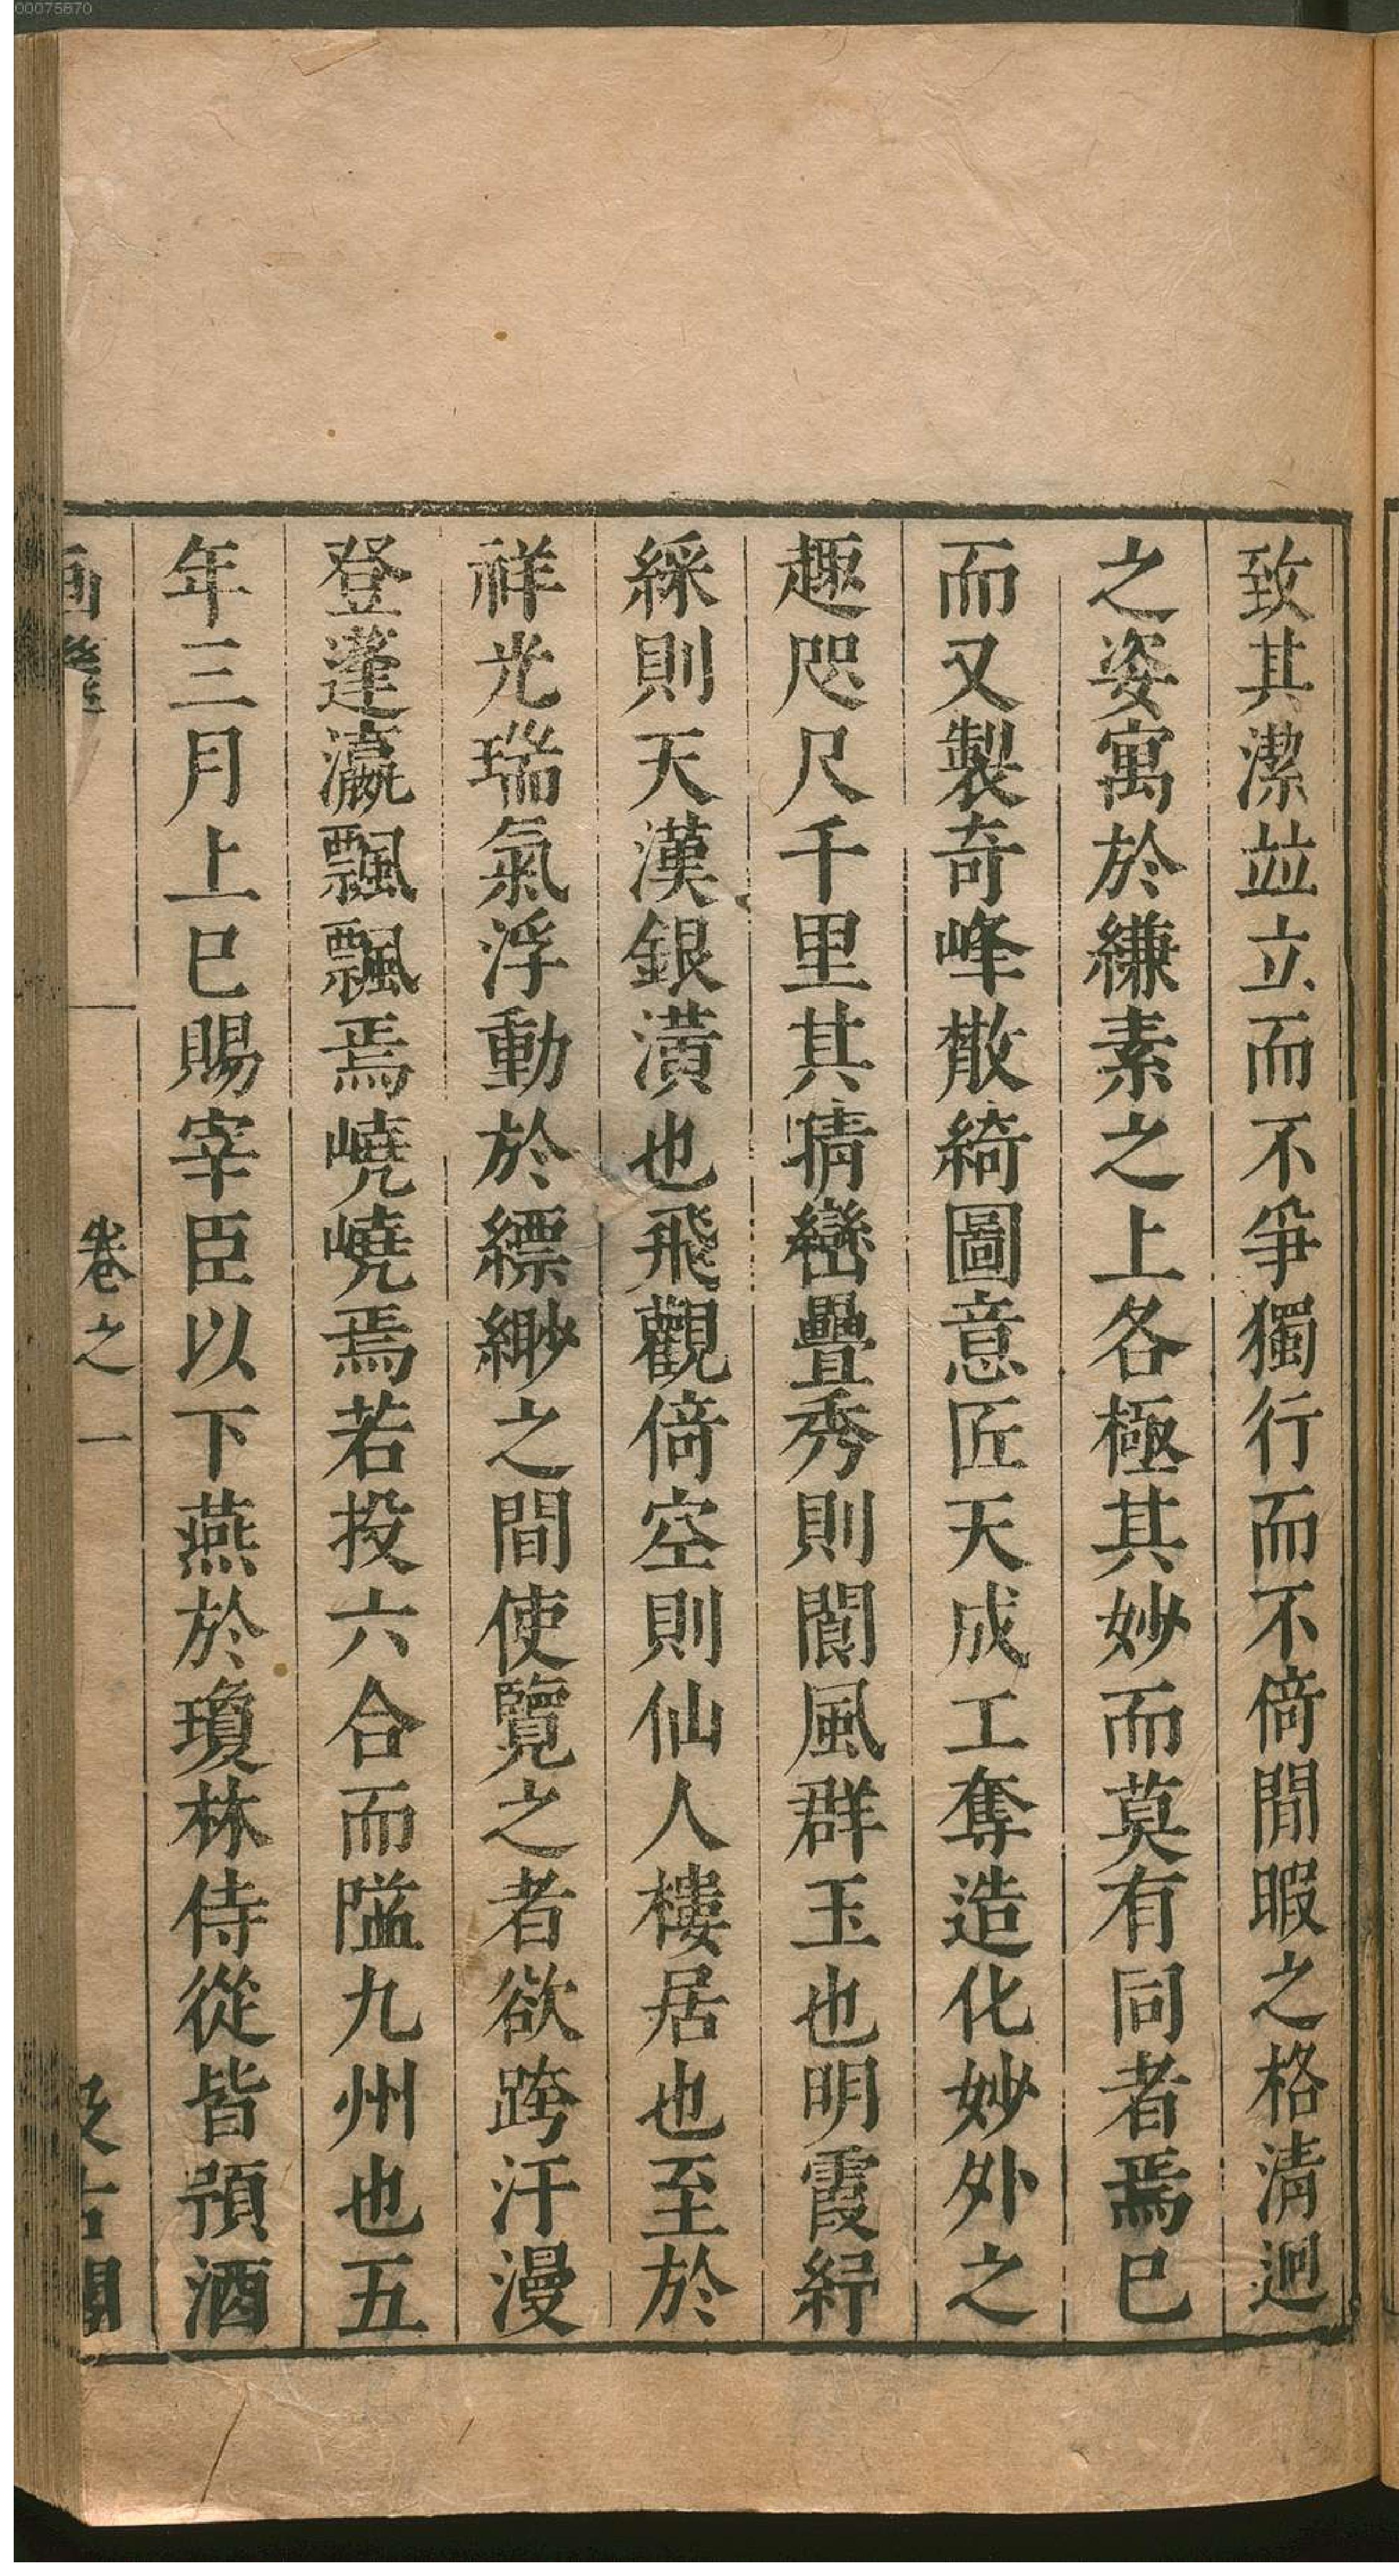 致其潔竝立而不爭獨行而不倚閒暇之格清逈
之姿寓於縑素之上各極其妙而莫有同者焉已
而又製奇峰散綺圖意匠天成工奪造化妙外之
趣咫尺千里其晴巒疊秀則閬風群玉也明霞紓
綵則天漢銀潢也飛觀倚空則仙人樓居也至於
祥光瑞氣浮動於縹緲之間使覽之者欲跨汗漫
登蓬瀛飄飄焉嶢嶢焉若投六合而隘九州也五
年三月上巳賜宰臣以下燕於瓊林侍從皆預酒
卷之一
00075870